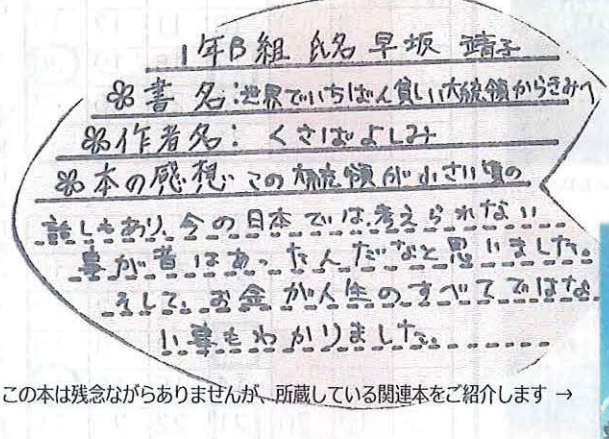 1年B組 氏名 早坂 靖子
書名:世界でいちばん貧しい大統領からきみへ
作者名: くさばよしみ
本の感想 この大統領が小さい頃の
話しもあり、今の日本では考えられない
事が昔はあったんだなと思いました。
そして、お金が人生のすべてではな
い事もわかりました。
この本は残念ながらありませんが、所蔵している関連本をご紹介します →